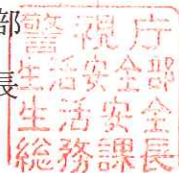 部
長
警視庁
生活安全部
生活安全
総務課長